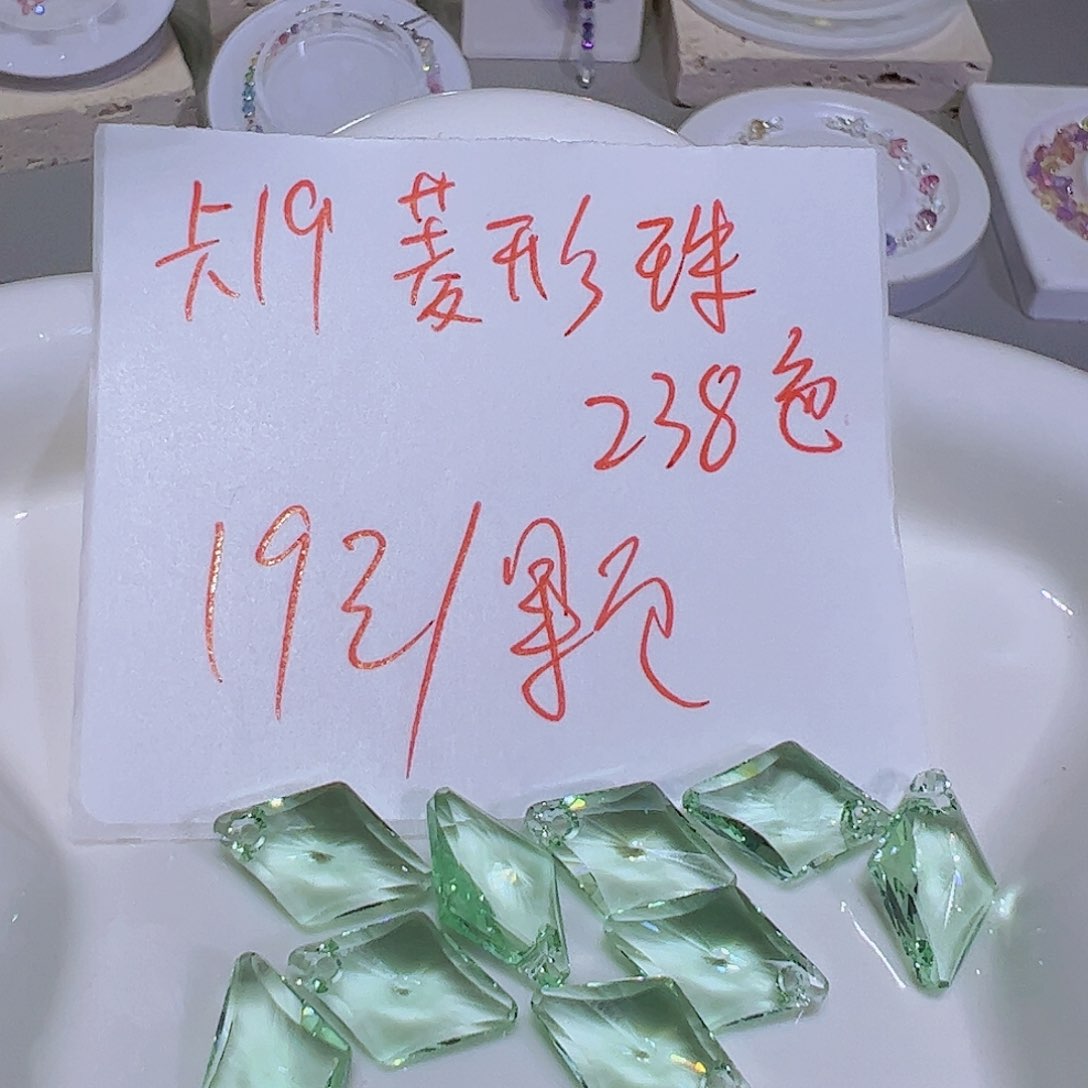 卡19 菱形珠
238色
19元/颗